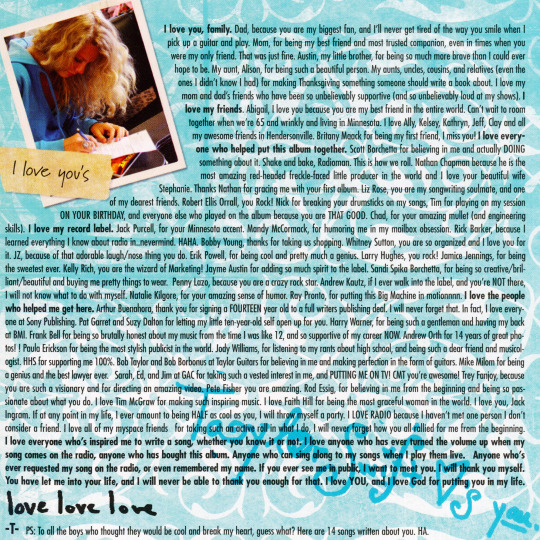 I love you's
I love you, family. Dad, because you are my biggest fan, and I'll never get tired of the way you smile when I
pick up a guitar and play. Mom, for being my best friend and most trusted companion, even in times when you
were my only friend. That was just fine. Austin, my little brother, for being so much more brave than I could ever
hope to be. My aunt, Alison, for being such a beautiful person. My aunts, uncles, cousins, and relatives (even the
ones I didn't know I had) for making Thanksgiving something someone should write a book about. I love my
mom and dad's friends who have been so unbelievably supportive (and so unbelievably loud at my shows). I
love my friends. Abigail, I love you because you are my best friend in the entire world. Can't wait to roam
together when we're 65 and wrinkly and living in Minnesota. I love Ally, Kelsey, Kathryn, Jeff, Clay and all
my awesome friends in Hendersonville. Britany Maack for being my first friend, I miss you! I love every-
one who helped put this album together. Scott Borchetta for believing in me and actually DOING
something about it. Shake and bake, Radioman. This is how we roll. Nathan Chapman because he is the
most amazing red-headed freckle-faced little producer in the world and I love your beautiful wife
Stephanie. Thanks Nathan for gracing me with your first album. Liz Rose, you are my songwriting soulmate, and one
of my dearest friends. Robert Ellis Orrall, you Rock! Nick for breaking your drumsticks on my songs, Tim for playing on my session
ON YOUR BIRTHDAY, and everyone else who played on the album because you are THAT GOOD. Chad, for your amazing mullet (and engineering
skills). I love my record label. Jack Purcell, for your Minnesota accent. Mandy McCormack, for humoring me in my mailbox obsession. Rick Barker, because I
learned everything I know about radio in..nevermind. HAHA. Bobby Young, thanks for taking us shopping. Whitney Sutton, you are so organized and I love you for
it. JZ, because of that adorable laugh/nose thing you do. Erik Powell, for being cool and pretty much a genius. Larry Hughes, you rock! Jamice Jennings, for being
the sweetest ever. Kelly Rich, you are the wizard of Marketing! Jayme Austin for adding so much spirit to the label. Sandi Spika Borchetta, for being so creative/bril-
liant/beautiful and buying me pretty things to wear. Penny Lazo, because you are a crazy rock star. Andrew Kautz, if I ever walk into the label, and you're NOT there,
I will not know what to do with myself. Natalie Kilgore, for your amazing sense of humor. Ray Pronto, for putting this Big Machine in motionnnn. I love the people
who helped me get here. Arthur Buenahora, thank you for signing a FOURTEEN year old to a full writers publishing deal. I will never forget that. In fact, I love every-
one at Sony Publishing. Pat Garret and Suzy Dalton for letting my little ten-year-old self open up for you. Harry Warner, for being such a gentleman and having my back
at BMI. Frank Bell for being so brutally honest about my music from the time I was like 12, and so supportive of my career NOW. Andrew Orth for 14 years of great pho-
tos! ! Paula Erickson for being the most stylish publicist in the world. Jody Williams, for listening to my rants about high school, and being such a dear friend and musicol-
ogist. HHS for supporting me 100%. Bob Taylor and Bob Borbonus at Taylor Guitars for believing in me and making perfection in the form of guitars. Mike Milom for being
a genius and the best lawyer ever. Sarah, Ed, and Jim at GAC for taking such a vested interest in me, and PUTTING ME ON TV! CMT you're awesome! Trey Fanjoy, because
you are such a visionary and for directing an amazing video. Pete Fisher you are amazing. Rod Essig, for believing in me from the beginning and being so pas-
sionate about what you do. I love Tim McGraw for making such inspiring music. I love Faith Hill for being the most graceful woman in the world. I love you, Jack
Ingram. If at any point in my life, I ever amount to being HALF as cool as you, I will throw myself a party. I LOVE RADIO because I haven't met one person I don't
consider a friend. I love all of my myspace friends for taking you all in what I do, I will never forget how you all rallied for me from the beginning.
I love everyone who's inspired me to write a song, whether you know it or not. I love anyone who has ever turned the volume up when my
song comes on the radio, anyone who has bought this album. Anyone who can sing along to my songs when I play them live. Anyone who's
ever requested my song on the radio, or even remembered my name. If you ever see me in public, I want to meet you. I will thank you myself.
You have let me into your life, and I will never be able to thank you enough for that. I love YOU, and I love God for putting you in my life.
love love love
-T- PS: To all the boys who thought they would be cool and break my heart, guess what? Here are 14 songs written about you. HA.